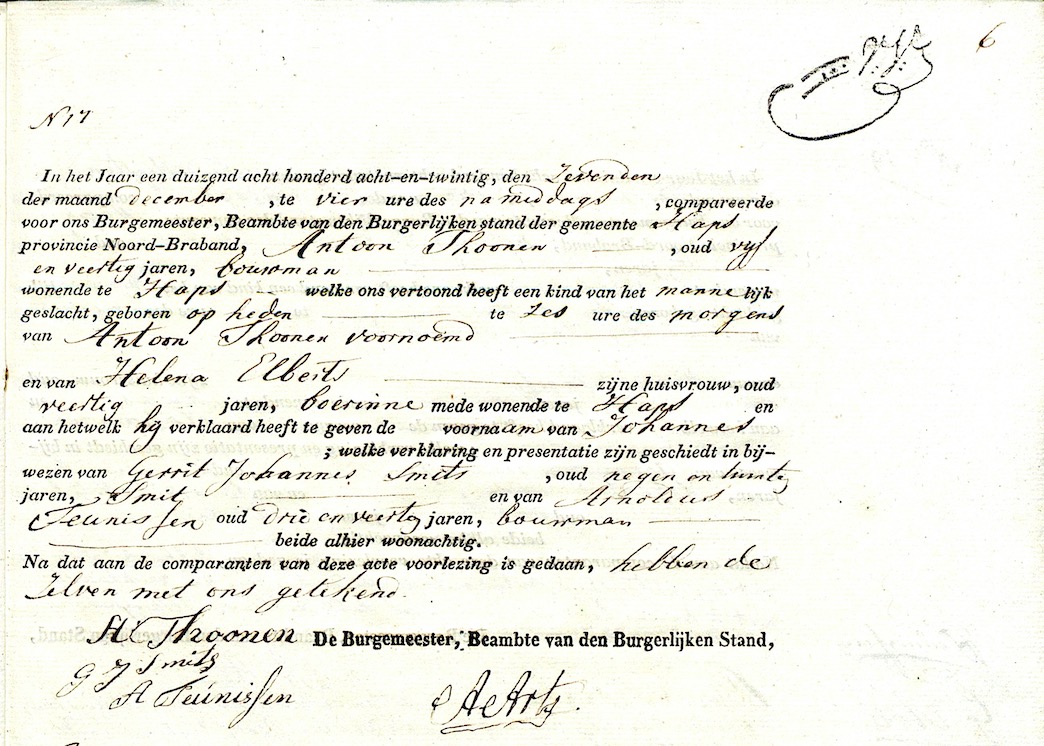 6
N 17
In het Jaar een duizend acht honderd acht-en-twintig, den Zevenden
der maand december , te vier ure des namiddags , compareerde
voor ons Burgemeester, Beambte van den Burgerlijken stand der gemeente Haps
provincie Noord-Braband, Antoon Thoonen , oud vyf
en veertig jaren, bouwman
wonende te Haps welke ons vertoond heeft een kind van het mannelijk
geslacht, geboren op heden te zes ure des morgens
van Antoon Thoonen voornoemd
en van Helena Elberts zijne huisvrouw, oud
veertig jaren, boerinne mede wonende te Haps en
aan hetwelk hy verklaard heeft te geven de voornaam van Johannes
; welke verklaring en presentatie zijn geschiedt in bij-
wezen van Gerrit Johannes Smits , oud negen en twintig
jaren, Smit en van Arnoldus
Teunissen oud drie en veertig jaren, bouwman
beide alhier woonachtig.
Na dat aan de comparanten van deze acte voorlezing is gedaan, hebben de
Zelven met ons getekend.
A Thoonen De Burgemeester, Beambte van den Burgerlijken Stand,
G J Smits
A Teunissen